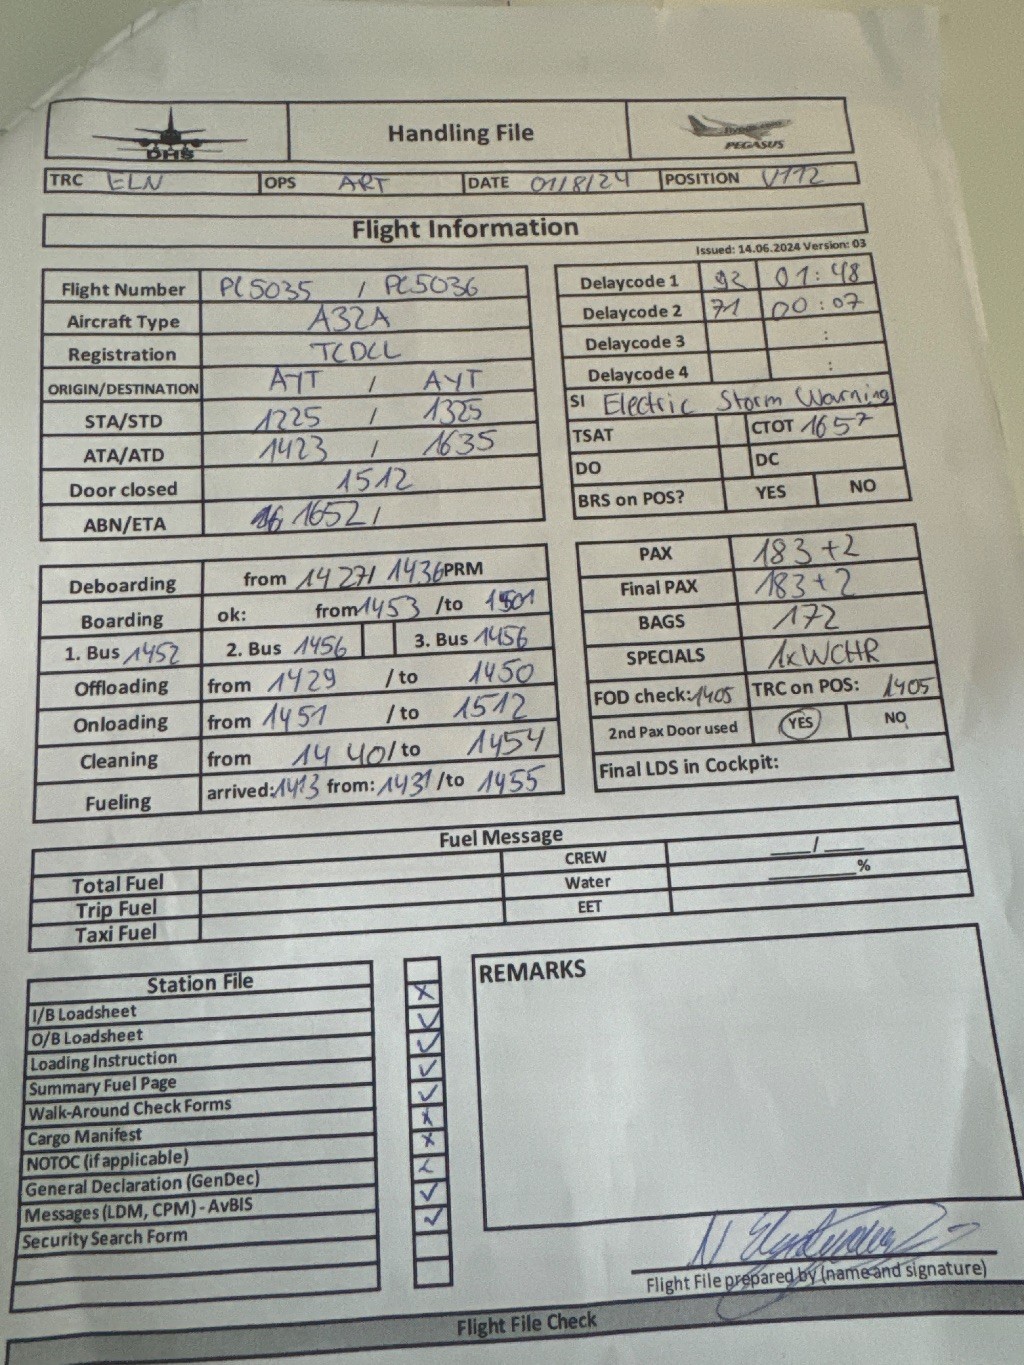 DHS
Handling File
flypgs.com
PEGASUS
TRC ELN OPS ART DATE 01/8/24 POSITION V172
Flight Information
Issued: 14.06.2024 Version: 03
Flight Number PC5035 / PC5036
Aircraft Type A32A
Registration TCDCL
ORIGIN/DESTINATION AYT / AYT
STA/STD 1225 / 1325
ATA/ATD 1423 / 1635
Door closed 1512
ABN/ETA 1652 /
Delaycode 1 93 01:48
Delaycode 2 71 00:07
Delaycode 3 :
Delaycode 4 :
SI Electric Storm Warning
TSAT CTOT 1657
DO DC
BRS on POS? YES NO
Deboarding from 1427/ 1436 PRM
Boarding ok: from 1453 /to 1501
1. Bus 1452 2. Bus 1456 3. Bus 1456
Offloading from 1429 /to 1450
Onloading from 1451 /to 1512
Cleaning from 1440/to 1454
Fueling arrived: 1413 from: 1431 /to 1455
PAX 183+2
Final PAX 183+2
BAGS 172
SPECIALS 1xWCHR
FOD check: 1405 TRC on POS: 1405
2nd Pax Door used YES NO
Final LDS in Cockpit:
Fuel Message
Total Fuel CREW ___/___
Trip Fuel Water ______%
Taxi Fuel EET
Station File
I/B Loadsheet
O/B Loadsheet
Loading Instruction
Summary Fuel Page
Walk-Around Check Forms
Cargo Manifest
NOTOC (if applicable)
General Declaration (GenDec)
Messages (LDM, CPM) - AvBIS
Security Search Form
REMARKS
Flight File prepared by (name and signature)
Flight File Check